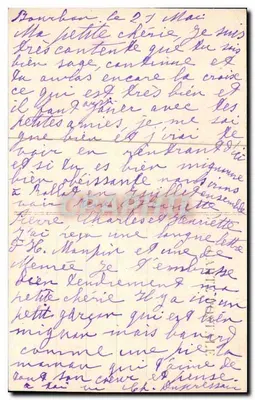 Bourbon, le 27 Mai
Ma petite chérie Je suis
très contente que tu sois
bien sage, continue et
tu auras encore la croix
ce qui est très bien et
il faut aussi jouer avec tes
petites amies, je me sais
que bien et j'irai te
voir en rentrant
et si tu es bien mignonne
bien obéissante nous irons
voir
Charles et Henriette
j'ai reçu une longue lettre
de H. Maupin et une de
Mémée Je t'embrasse
bien tendrement ma
petite chérie Il y a ici un
petit garçon qui est bien
mignon mais bavard
comme une pie la
maman qui t'aime de
tout son cœur et pense
à toi